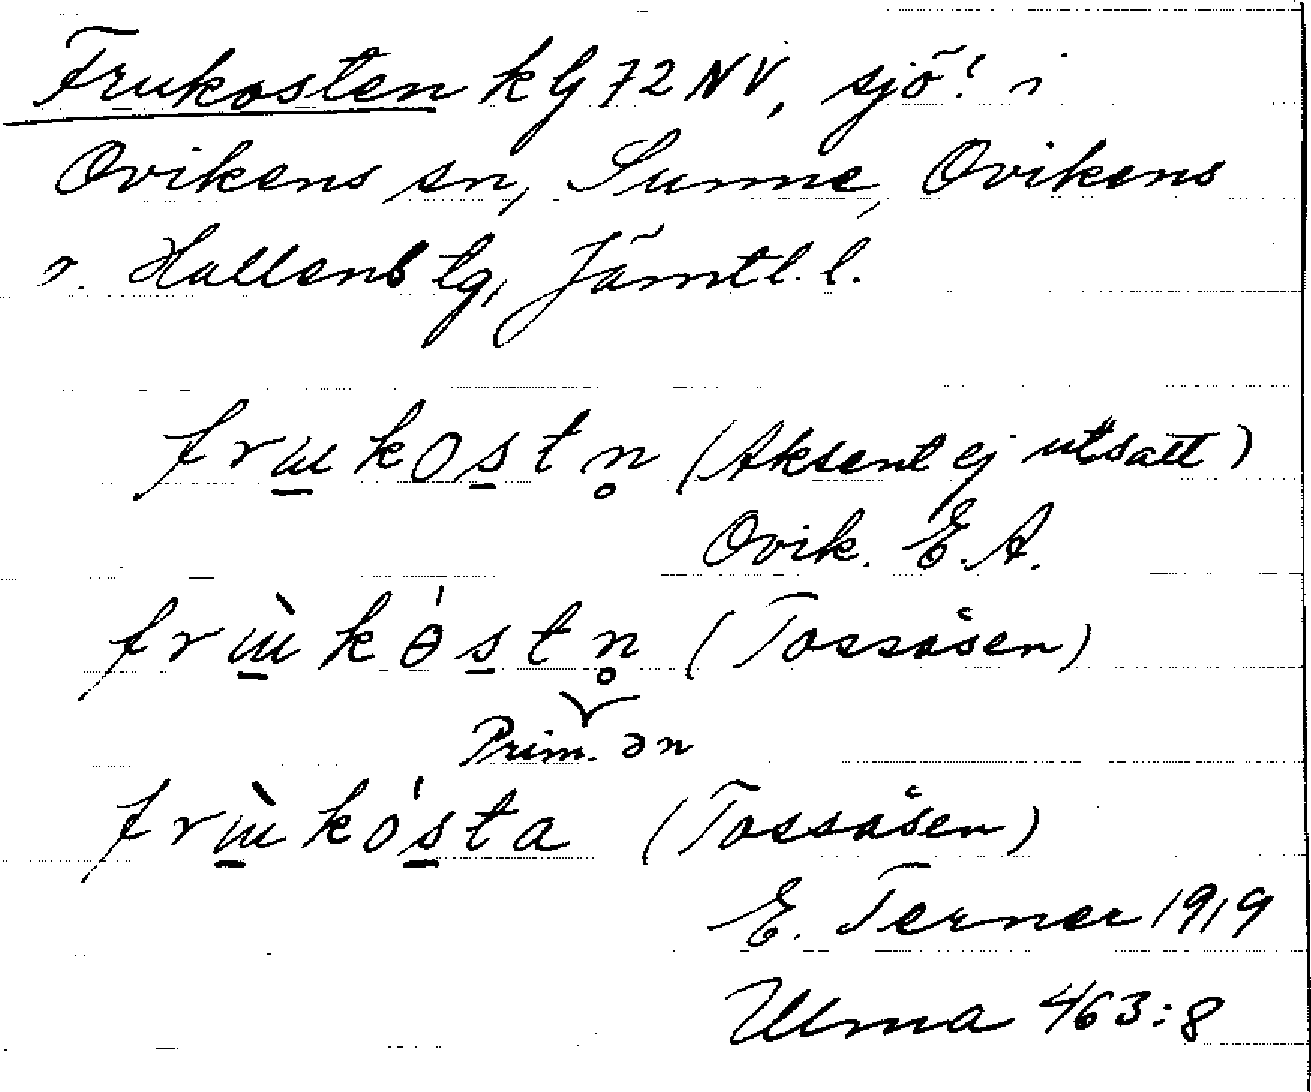 Frukosten kG 72 NV, sjö! i
Ovikens sn, Sunne, Ovikens
o. Hallens tg, Jämtl. l.
frɯ̱kos̱tn̥ (Aksent ej utsatt)
Ovik. E. A.
frɯ̱̀kɵ́s̱tn̥ (Tossåsen)
Prim. ən
frɯ̱̀kós̱ta (Tossåsen)
E. Terner 1919
Ulma 463:8